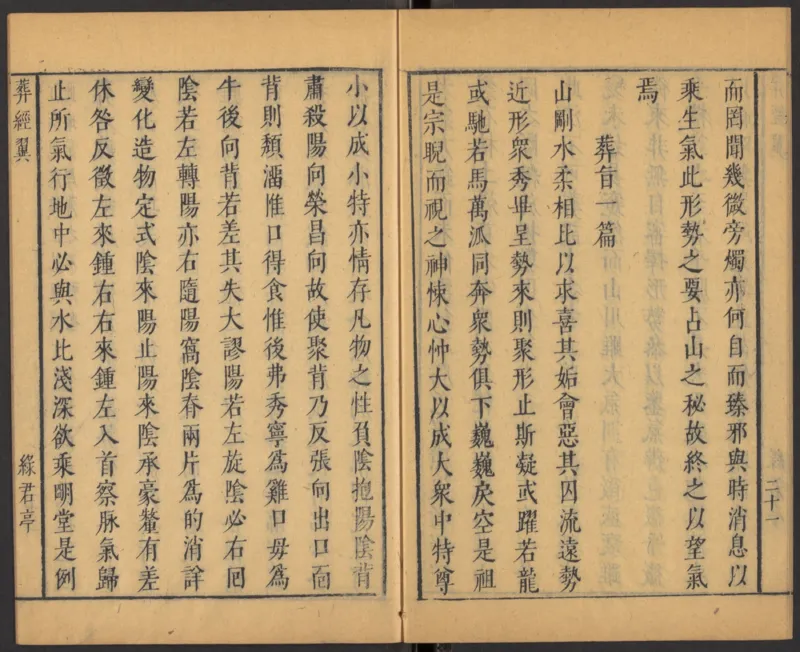 而罔聞幾微旁燭亦何自而臻邪與時消息以
乘生氣此形勢之要占山之秘故終之以望氣
焉
葬旨一篇
山剛水柔相比以求喜其姤會惡其囚流遠勢
近形衆秀畢呈勢來則聚形止斯疑或躍若龍
或馳若馬萬泒同奔衆勢俱下巍巍戾空是祖
是宗睨而視之神悚心忡大以成大衆中特尊
二十一
小以成小特亦情存凡物之性負陰抱陽陰背
肅殺陽向榮昌向故使聚背乃反張向出口靣
背則頹濡惟口得食惟後弗秀寧為雞口毋為
牛後向背若差其失大謬陽若左旋陰必右囘
陰若左轉陽亦右隨陽窩陰脊兩片為的消詳
變化造物定式陰來陽止陽來陰承豪釐有差
休咎反徵左來鍾右右來鍾左入首察脉氣歸
止所氣行地中必與水比淺深欲乘明堂是例
葬經翼
綠君亭